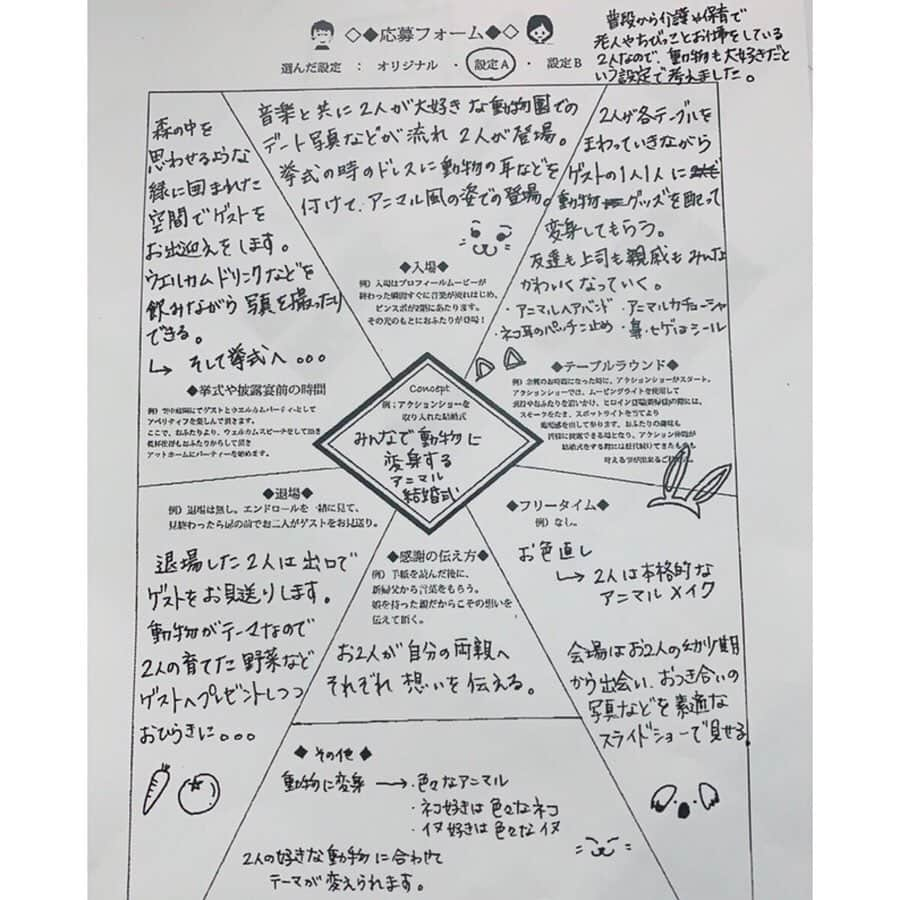 ◇◆応募フォーム◆◇
選んだ設定 : オリジナル ・ 設定A ・ 設定B
普段から介護や保育で
老人やちびっことお仕事をしている
2人なので、動物も大好きだと
いう設定で考えました。
森の中を
思わせるような
緑に囲まれた
空間でゲストを
お出迎えをします。
ウエルカムドリンクなどを
飲みながら写真を撮ったり
できる。
↳ そして挙式へ。。。
◆挙式や披露宴前の時間
例）空中庭園にてゲストとウエルカムパーティとして
アペリティフを楽しんで頂きます。
ここで、おふたりより、ウェルカムスピーチをして頂き
乾杯発声もおふたりからして頂き
アットホームにパーティーを始めます。
音楽と共に2人が大好きな動物園での
デート写真などが流れ 2人が登場。
挙式の時のドレスに動物の耳などを
付けて、アニマル風の姿での登場。
◆入場◆
例）入場はプロフィールムービーが
終わった瞬間すぐに音楽が流れはじめ、
ピンスポが2階にあたります。
その光のもとにおふたりが登場！
2人が各テーブルを
まわっていきながら
ゲストの1人1人に
動物グッズを配って
変身してもらう。
友達も上司も親戚もみんな
かわいくなっていく。
・アニマルヘアバンド ・アニマルカチューシャ
・ネコ耳のパッチン止め ・鼻・ヒゲのシール
◆テーブルラウンド◆
例）余興のお時間になった時に、アクションショーがスタート。
アクションショーでは、ムービングライトを使用して
スモークをたき、スポットライトを当てより
Concept
例：アクションショーを
取り入れた結婚式
みんなで動物に
変身する
アニマル
結婚式
◆退場◆
例）退場は無し。エンドロールを一緒に見て、
見終わったら扉の前でお二人がゲストをお見送り。
退場した2人は出口で
ゲストをお見送りします。
動物がテーマなので
2人の育てた野菜など
ゲストへプレゼントしつつ
おひらきに。。。
◆感謝の伝え方◆
例）手紙を読んだ後に、
新婦父から言葉をもらう。
娘を持った親だからこその想いを
伝えて頂く。
お2人が自分の両親へ
それぞれ想いを伝える。
◆フリータイム◆
例）なし。
お色直し
↳ 2人は本格的な
アニマルメイク
会場はお2人の幼少期
から出会い、おつき合いの
写真などを素適な
スライドショーで見せる。
◆その他◆
動物に変身 → ・色々なアニマル
・ネコ好きは色々なネコ
・イヌ好きは色々なイヌ
2人の好きな動物に合わせて
テーマが変えられます。